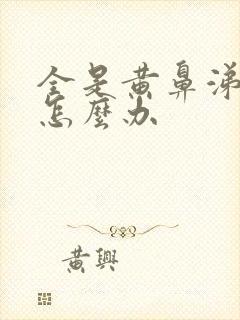 全是黄鼻涕
怎麼办
黄興